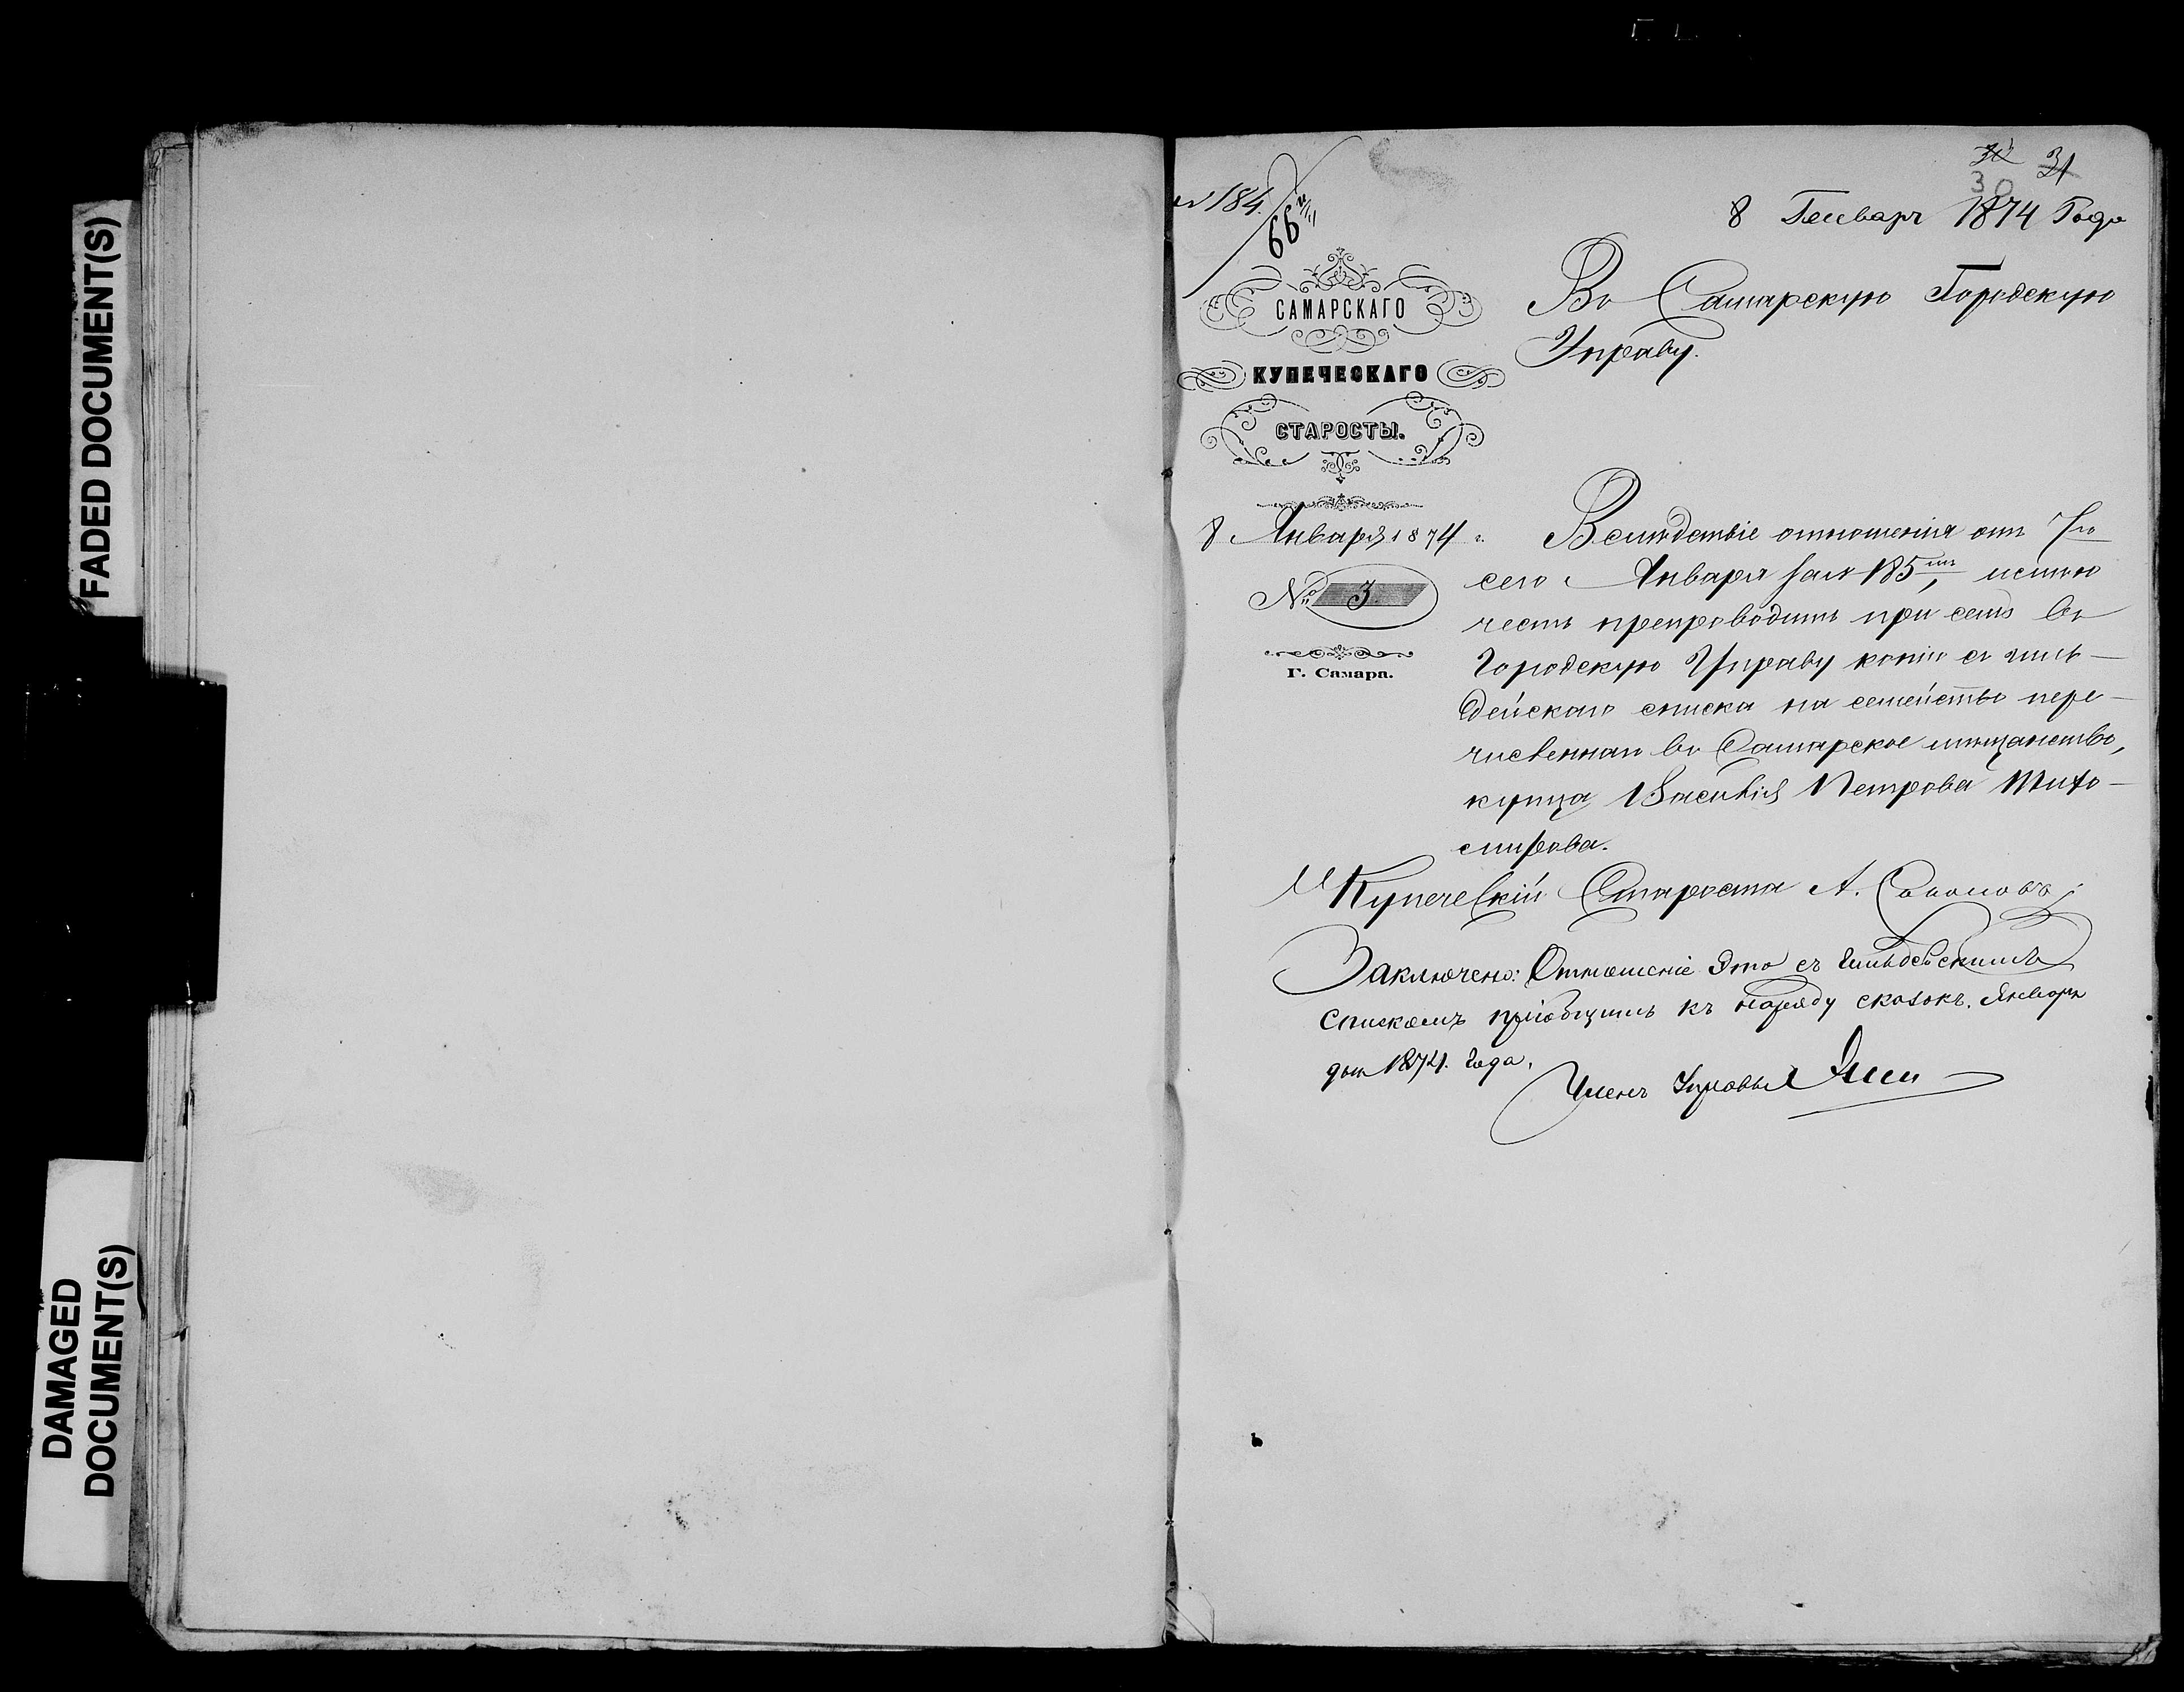 FADED DOCUMENT(S)
DAMAGED
DOCUMENT(S)
31
30
184.
66
8 Генваря 1874 Года
САМАРСКАГО
КУПЕЧЕСКАГО
СТАРОСТЫ.
8 Января 1874 г.
№ 3
Г. Самара.
Въ Самарскую Городскую
Управу.
Вслѣдствіе отношенія отъ 7го
сего Января за № 185, имѣю
честь препроводить при семъ въ
Городскую Управу копію съ гиль-
дейскаго списка на семейство пере-
численнаго въ Самарское мѣщанство,
купца Василія Петрова Тихо-
мирова.
Купеческій Староста А. Соколовъ
Заключено: Отношеніе Это съ Гильдейскимъ
спискомъ пріобщить къ наряду сказокъ. Января
дня 1874. Года.
Членъ Управы